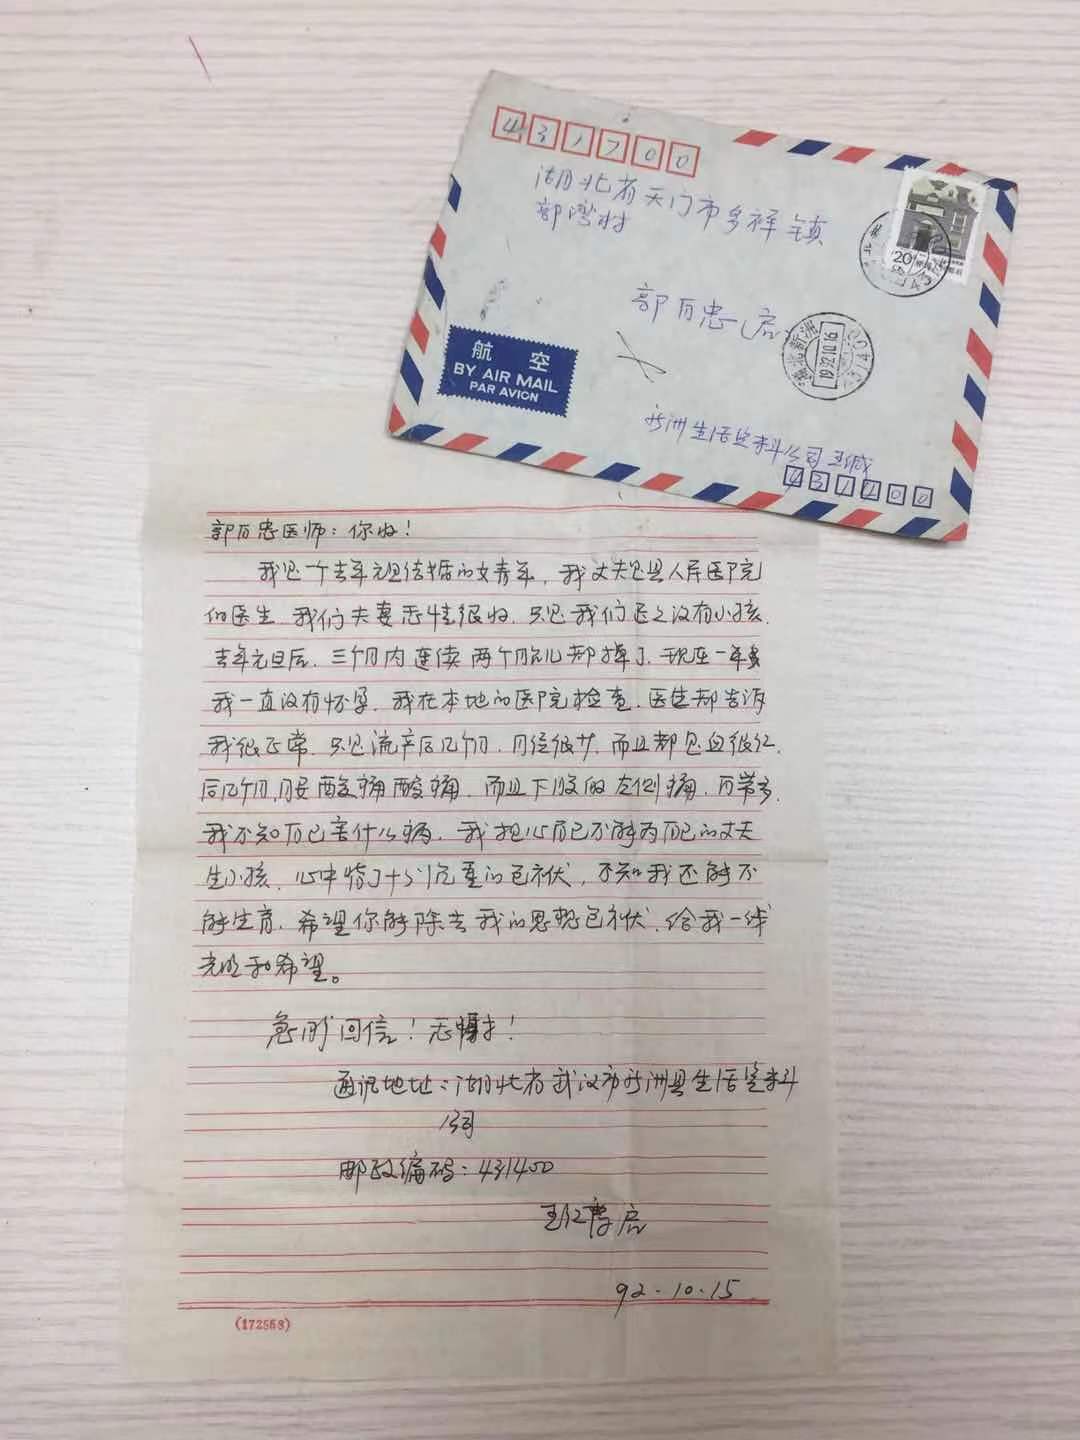 431700
湖北省天门市多祥镇
郭湾村
郭百忠(启)
航 空
BY AIR MAIL
PAR AVION
20
湖北新洲
1992.10.16
新洲生活资料公司 王缄
431400
郭百忠医师：你好！
我是一个去年元旦结婚的女青年，我丈夫是县人民医院
的医生，我们夫妻感情很好，只是我们迟迟没有小孩，
去年元旦后，三个月内连续两个胎儿都掉了，现在一年多
我一直没有怀孕，我在本地的医院检查，医生都告诉
我很正常，只是流产后几个月，月经很少，而且都是血很红，
后几个月，腰酸痛酸痛，而且下腹的左侧痛，白带多，
我不知自己害什么病，我担心自己不能为自己的丈夫
生小孩，心中背了十分沉重的包袱，不知我还能不
能生育，希望你能除去我的思想包袱，给我一线
光明和希望。
急盼回信！感谢！
通讯地址：湖北省武汉市新洲县生活资料
公司
邮政编码：431400
王红 启
92.10.15
(172568)